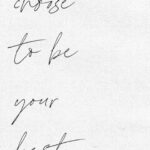 choose
to be
your
best